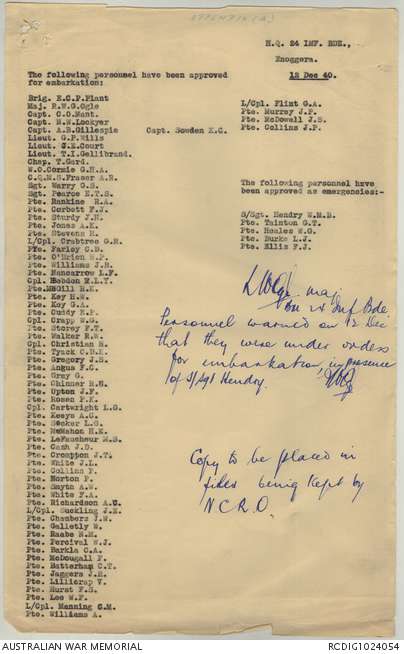 APPENDIX (A)
H.Q. 24 INF. BDE.,
Enoggera.
12 Dec 40.
The following personnel have been approved
for embarkation:
Brig. E.C.P. Plant
Maj. R.W.G. Ogle
Capt. C.O. Nant.
Capt. N.W. Lockyer
Capt. A.B. Gillespie Capt. Sowden K.C.
Lieut. G.P. Wills
Lieut. J.E. Court
Lieut. T.I. Gellibrand.
Chap. T. Gard.
W.O. Cormie G.H.A.
C.Q.M.S. Fraser A.R.
Sgt. Warry G.S.
Sgt. Pearce E.T.S.
Pte. Rankine R.A.
Pte. Corbett F.J.
Pte. Sturdy F.H.
Pte. Jonas A.K.
Pte. Stevens R.
L/Cpl. Crabtree G.H.
Pte. Farley C.D.
Pte. O'Brien H.P.
Pte. Williams J.R.
Pte. Nancarrow L.F.
Cpl. Hebdon E.L.T.
Pte. McGill R.K.
Pte. Key H.W.
Pte. Koy G.A.
Pte. Cuddy E.P.
Cpl. Crapp W.G.
Pte. Storey F.T.
Pte. Walker R.W.
Cpl. Christian H.
Pte. Tyack C.H.E.
Pte. Gregory J.S.
Pte. Angus F.C.
Pte. Grey G.
Pte. Chinner R.H.
Pte. Upton J.F.
Pte. Rosen F.K.
Cpl. Cartwright L.G.
Pte. Keeys A.C.
Pte. Secker L.S.
Pte. McMahon H.K.
Pte. LeFaucheur M.S.
Pte. Cash J.D.
Pte. Crompton J.T.
Pte. White J.L.
Pte. Collins P.
Pte. Norton P.
Pte. Smyth A.W.
Pte. White F.A.
Pte. Richardson A.C.
L/Cpl. Suckling J.E.
Pte. Chambers J.W.
Pte. Galletly W.
Pte. Raabe N.H.
Pte. Percival W.J.
Pte. Barkla C.A.
Pte. McDougall F.
Pte. Batterham C.T.
Pte. Jaggers J.H.
Pte. Lillicrap V.
Pte. Hurst F.S.
Pte. Lee W.F.
L/Cpl. Manning C.M.
Pte. Williams A.
L/Cpl. Flint G.A.
Pte. Murrey J.P.
Pte. McDowell J.S.
Pte. Collins J.P.
The following personnel have
been approved as emergencies:-
S/Sgt. Hendry W.M.B.
Pte. Tainton G.T.
Pte. Heales W.G.
Pte. Burke L.J.
Pte. Ellis F.J.
maj
BM 24 Inf Bde
Personnel warned on 12 Dec
that they were under orders
for embarkation, in presence
of S/Sgt Hendry.
Copy to be placed in
files being kept by
N.C.R.O.
AUSTRALIAN WAR MEMORIAL
RCDIG1024054